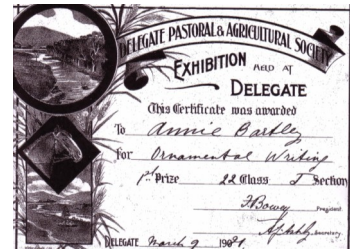 DELEGATE PASTORAL & AGRICULTURAL SOCIETY
EXHIBITION HELD AT
DELEGATE
This Certificate was awarded
To Annie Bartley
For Ornamental Writing
1st Prize 22 Class J Section
President
Secretary
DELEGATE March 9